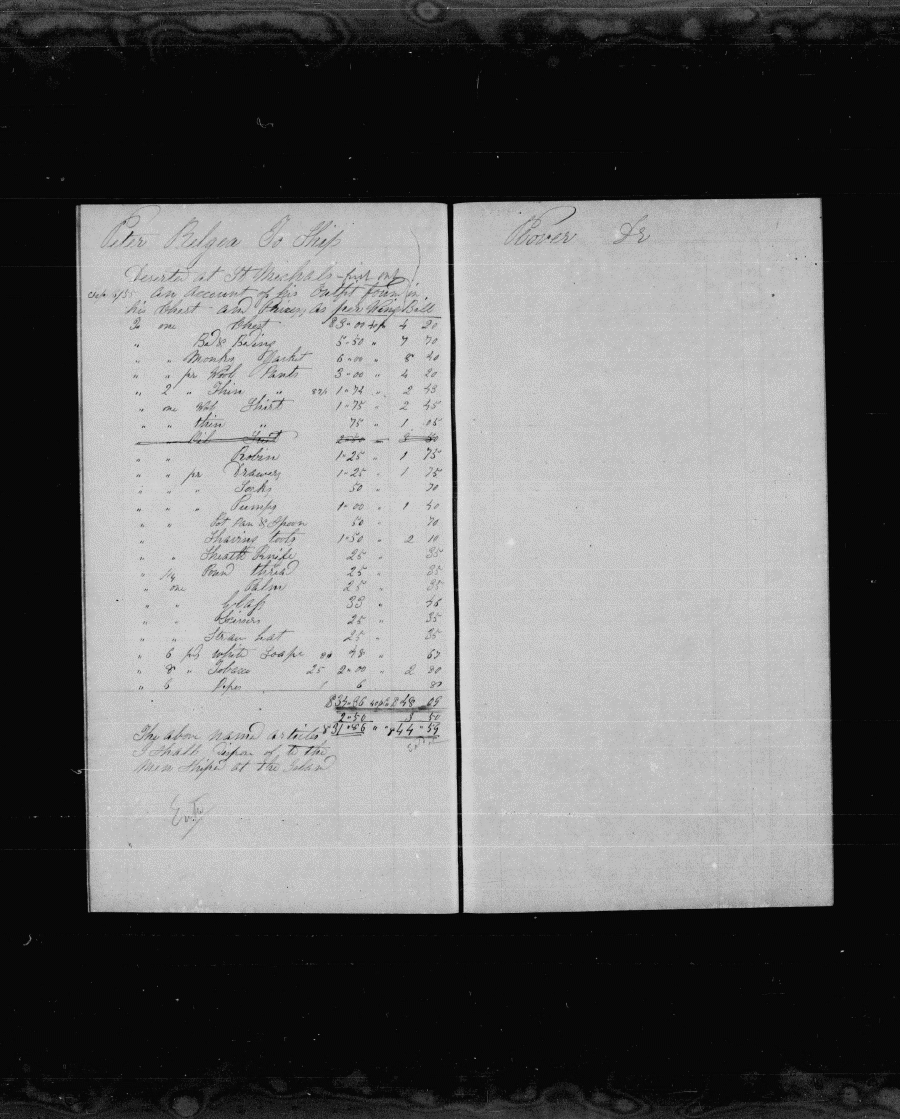 Peter Belgea To Ship
Rover Dr
Deserted at St Mechals first out
Sept 5/55 an account of his Outfit found in
his Chest and Prices as per Wing Bill
To one Chest $3-00 40p 4 20
" Bed & Beding 5-50 " 7 70
" " Monky Jacket 6-00 " 8 40
" " pr Wool Pants 3-00 " 4 20
" 2 " Thin " 87½ 1-74 " 2 43
" one Wol Shirt 1-75 " 2 45
" " thin " 75 " 1 05
Oil Suit 2-50 3 50
" " 1-25 " 1 75
" " pr Drawers 1-25 " 1 75
" " " Socks 50 " 70
" " " Pumps 1-00 " 1 40
" " Pot Pan & Spoon 50 " 70
" Shaving tools 1-50 " 2 10
" " Sheath Knife 25 " 35
" Pound thread 25 " 35
" one Palm 25 " 35
" " Glass 33 " 46
" " Scissors 25 " 35
" " Straw hat 25 " 35
" 6 white Soape 48 " 67
" 8 " Tobacco 25 2-00 " 2 80
" 6 Pipes 1 6
$34-36 40p $48 09
2-50 3 50
The above name articles $31-86 " " $44-59
I Shall Dispos of to the
Men Shipd at the Island